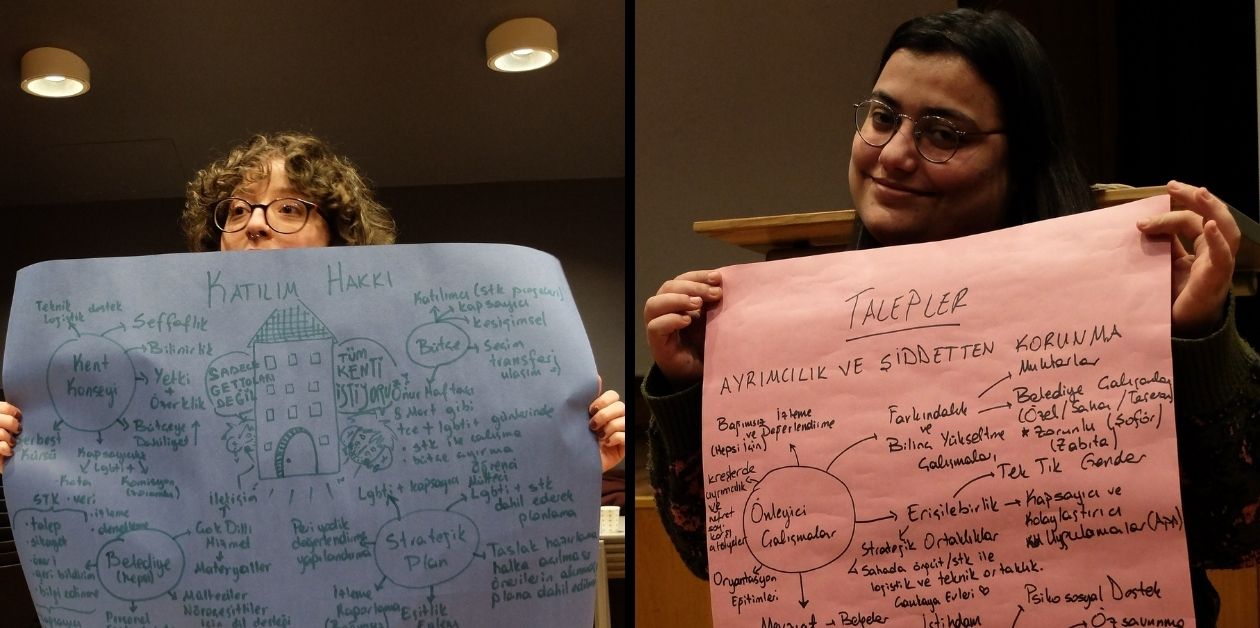 KATILIM HAKKI
Teknik destek
Lojistik
Kent
Konseyi
Şeffaflık
Bilinirlik
Yetki
+
Özerklik
Bütçeye
Dahiliyet
Serbest
Kürsü
Kapsayıcılık
Lgbti+
Kota
Komisyon
(zorunlu)
SADECE
GETTOLARI
DEĞİL
TÜM
KENTİ
İSTİYORUZ
Bütçe
Katılımcı (stk projeleri)
kapsayıcı
kesişimsel
Seçim
transferi
ulaşım
Onur Haftası
8 Mart gibi
+ce + lgbti+ günlerinde
stk ile çalışma
bütçe ayırma
STK · veri
talep
şikayet
öneri
geri bildirim
bilgi edinme
izleme
denetleme
Belediye
(hepsi)
İletişim
Çok Dilli
Hizmet
Materyaller
Mülteciler
Nöroçeşitliler
için dil desteği
Personel
Stratejik
Plan
Lgbti+ kapsayıcı
öğrenci
Mülteci
Lgbti+ stk
dahil ederek
planlama
Periyodik
değerlendirme
yapılandırma
Taslak hazırlanıp
halka açılması
önerilerin alınması
plana dahil edilmesi
İzleme
Raporlama
Eşitlik
TALEPLER
AYRIMCILIK VE ŞİDDETTEN KORUNMA
Önleyici
Çalışmalar
Bağımsız İzleme
ve Değerlendirme
(Hepsi İçin)
kreşlerde
ayrımcılık
ve
nefret
söy.
karşı
atölyeler
Oryantasyon
Eğitimleri
Mevzuat → Belgeler
Farkındalık
ve
Bilinç Yükseltme
Çalışmaları
Muhtarlar
Belediye Çalışanları
(Özel / Saha / Taşeron)
* Zorunlu (Şoför)
(Zabıta)
Tek Tık Gender
Erişilebilirlik
Kapsayıcı ve
Kolaylaştırıcı
Uygulamalar (App)
Stratejik Ortaklıklar
Sahada örgüt/stk ile
lojistik ve teknik ortaklık.
Çankaya Evleri ♡
İstihdam
Psiko sosyal Destek
Öz savunma